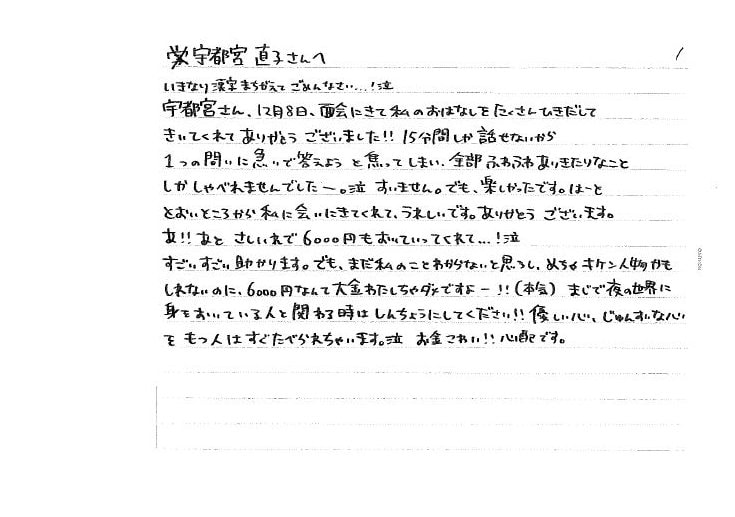 宇都宮 直子さんへ
1
いきなり漢字まちがえてごめんなさい…!泣
宇都宮さん、12月8日、面会にきて私のおはなしをたくさんひきだして
きいてくれてありがとうございました!! 15分間しか話せないから
1つの問いに急いで答えようと焦ってしまい、全部ふわふわありきたりなこと
しかしゃべれませんでしたー。泣 すいません。でも、楽しかったです。はーと
とおいところから私に会いにきてくれて、うれしいです。ありがとうございます。
あ!! あと さしいれで6000円もおいていってくれて…!泣
すごいすごい助かります。でも、まだ私のことわからないと思うし、めちゃキケン人物かも
しれないのに、6000円なんて大金わたしちゃダメですよー!!(本気) まじで夜の世界に
身をおいている人と関わる時はしんちょうにしてください!! 優しい心、じゅんすいな心
をもつ人はすぐたべられちゃいます。泣 お金こわい!! 心配です。